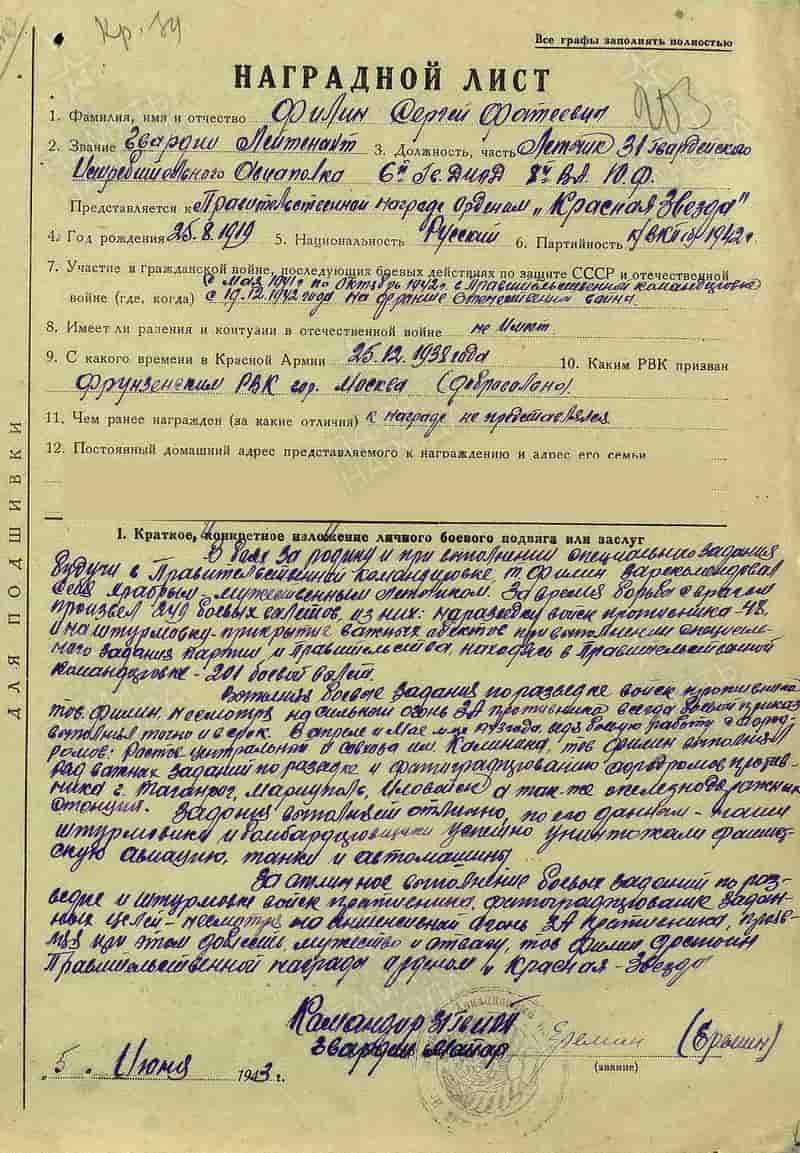 Кр. 34
Все графы заполнять полностью
НАГРАДНОЙ ЛИСТ
1. Фамилия, имя и отчество Филин Сергей Фатеевич
2. Звание Гвардии Лейтенант 3. Должность, часть Летчик 31 Гвардейского
Истребительного Авиаполка 6й Гв. ДИАД 8й ВА Ю.Ф.
Представляется к Правительственной награде Орденом „Красная Звезда"
4. Год рождения 25.8.1919 5. Национальность Русский 6. Партийность к/ВКП(б) 1942г.
7. Участие в гражданской войне, последующих боевых действиях по защите СССР и отечественной
с Мая 1941г по Октябрь 1942г. с Правительственной командировке
войне (где, когда) с 19.12.1942 года на фронте Отечественной война.
8. Имеет ли ранения и контузии в отечественной войне не Имеет
9. С какого времени в Красной Армии 25.12.1938 года 10. Каким РВК призван
Фрунзенским РВК гор. Москва (добровольно)
11. Чем ранее награжден (за какие отличия) к награде не представлялся.
12. Постоянный домашний адрес представляемого к награждению и адрес его семьи
1. Краткое, конкретное изложение личного боевого подвига или заслуг
В боях за родину и при выполнении специального задания
будучи в Правительственной командировке, т. Филин зарекомендовал
себя храбрым, мужественным летчиком. За время борьбы с врагом
произвел 249 боевых вылетов, из них: на разведку войск противника - 48.
и на штурмовку прикрытие важных обектов при выполнении специаль-
ного задания партии и правительства, находясь в Правительственной
командировке - 201 боевой вылет.
Выполняя боевые задания по разведке войск противника
тов. Филин, несмотря на сильный огонь ЗА противника всегда боевой приказ
выполнял точно и в срок. В апреле и Мае м-це 1943 года, ведя боевую работу с аэрод-
ромов: Ростов центральный и совхоза им Калинина, тов Филин выполнял
ряд важных заданий по разведке и фотографированию аэродромов против-
ника г. Таганрог, Мариуполь, Иловайск а так-же железнодорожных
станций. Задания выполняет отлично, по его данным - наши
штурмовики и бомбардировщики успешно уничтожали фашист-
скую авиацию, танки и автомашины.
За отличное выполнение боевых заданий по раз-
ведке и штурмовке войск противника, фотографирование задан-
ных целей - несмотря на интенсивный огонь ЗА противника, проя-
вляя при этом доблесть, мужество и отвагу, тов Филин достоин
Правительственной награды орденом „Красная-Звезда"
Командир 31 Гв ИАП
Гвардии Майор Еремин (Еремин)
(звание)
„5" Июня 1943 г.
ДЛЯ ПОДШИВКИ